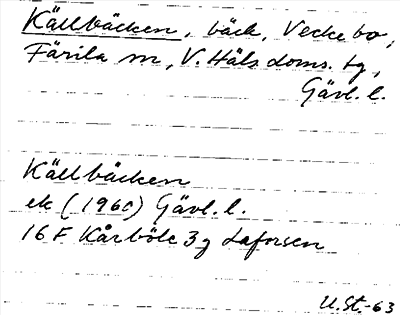 Källbäcken, bäck, Veckebo,
Färila sn, V. Häls. doms. tg,
Gävl. l.
Källbäcken
ek (1960) Gävl. l.
16 F Kårböle 3 g Laforsen
U.St.-63